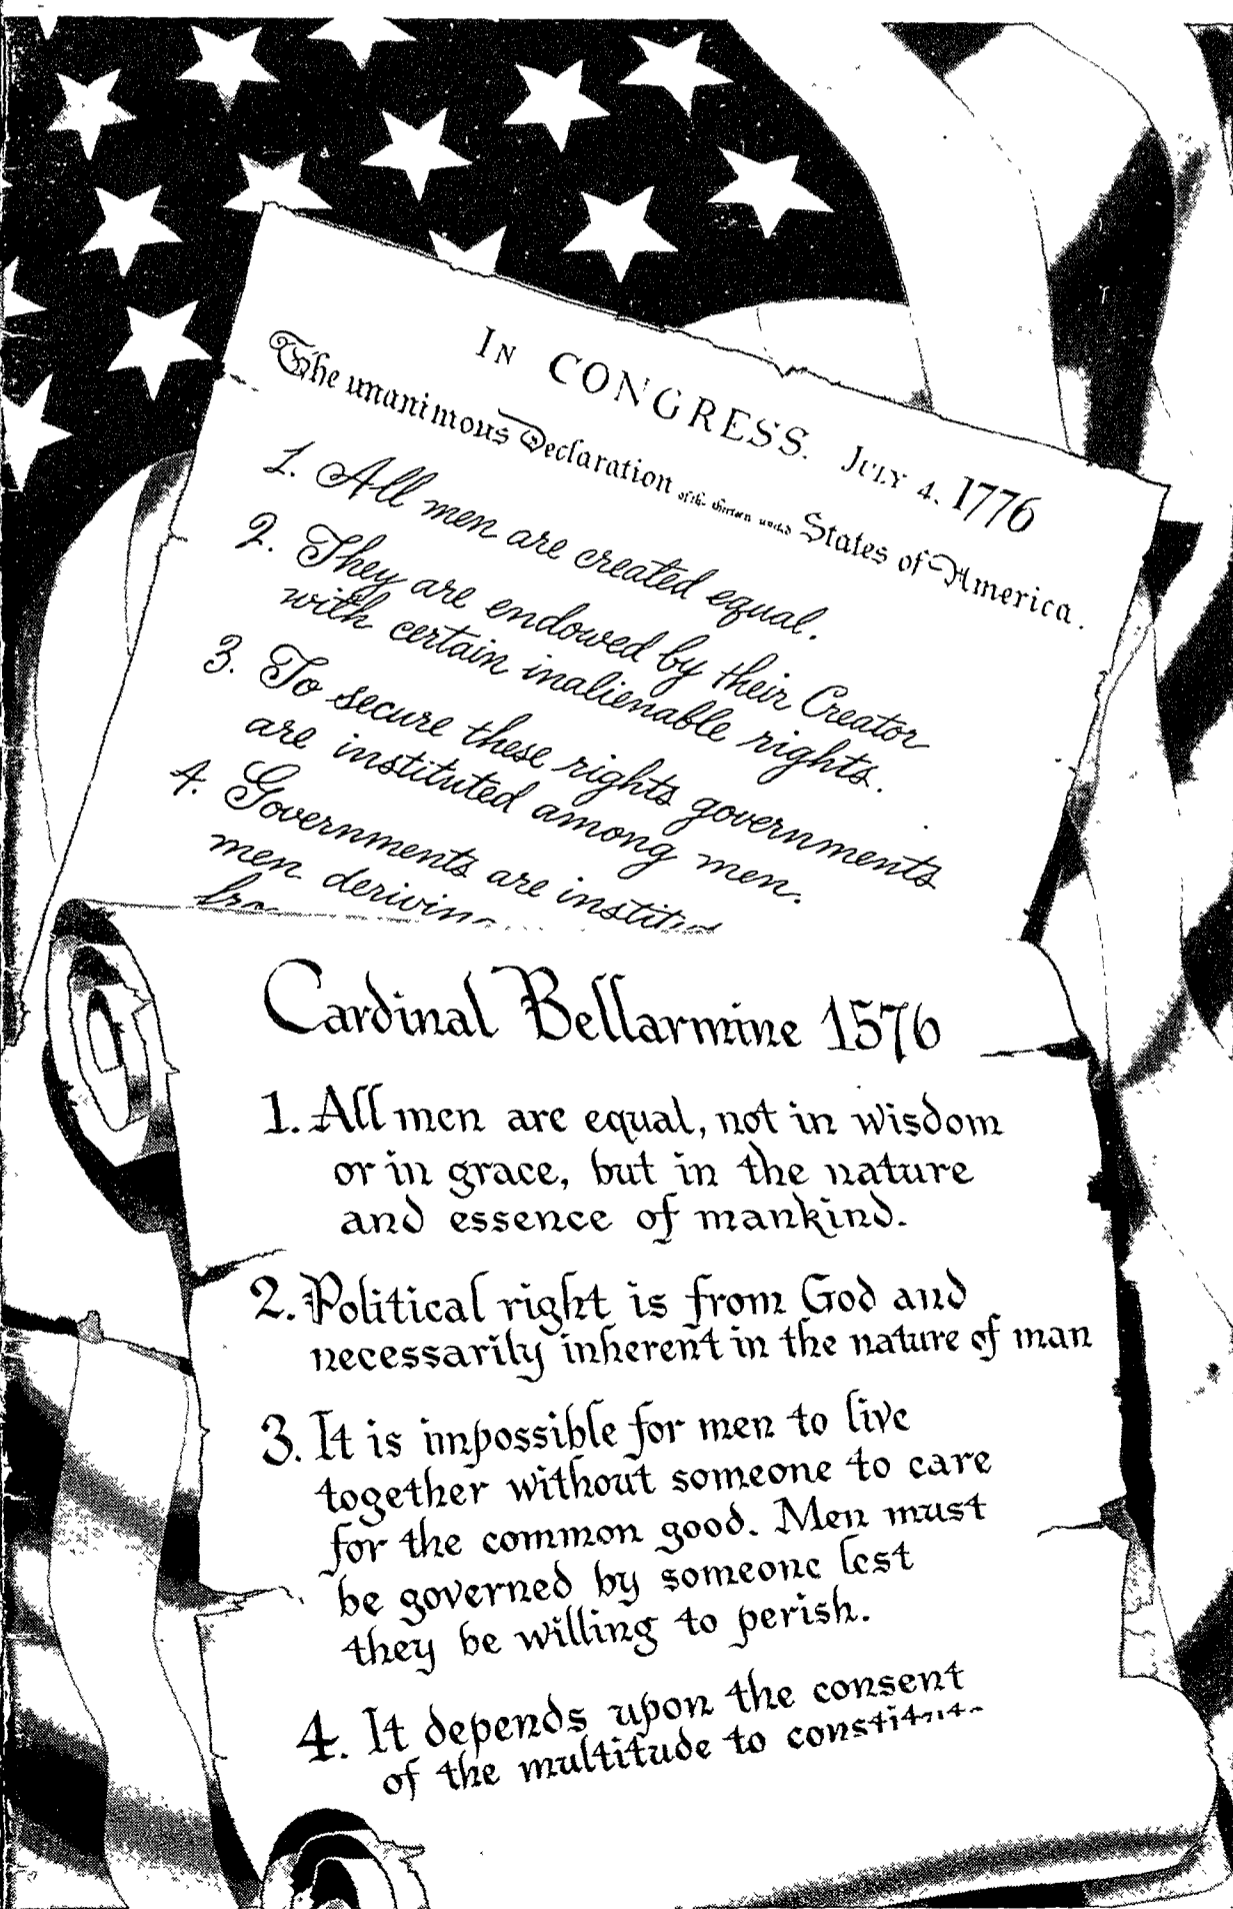 IN CONGRESS. JULY 4, 1776
The unanimous Declaration of the thirteen united States of America.
1. All men are created equal.
2. They are endowed by their Creator
with certain inalienable rights.
3. To secure these rights governments
are instituted among men.
4. Governments are
men
Cardinal Bellarmine 1576
1. All men are equal, not in wisdom
or in grace, but in the nature
and essence of mankind.
2. Political right is from God and
necessarily inherent in the nature of man
3. It is impossible for men to live
together without someone to care
for the common good. Men must
be governed by someone lest
they be willing to perish.
4. It depends upon the consent
of the multitude to